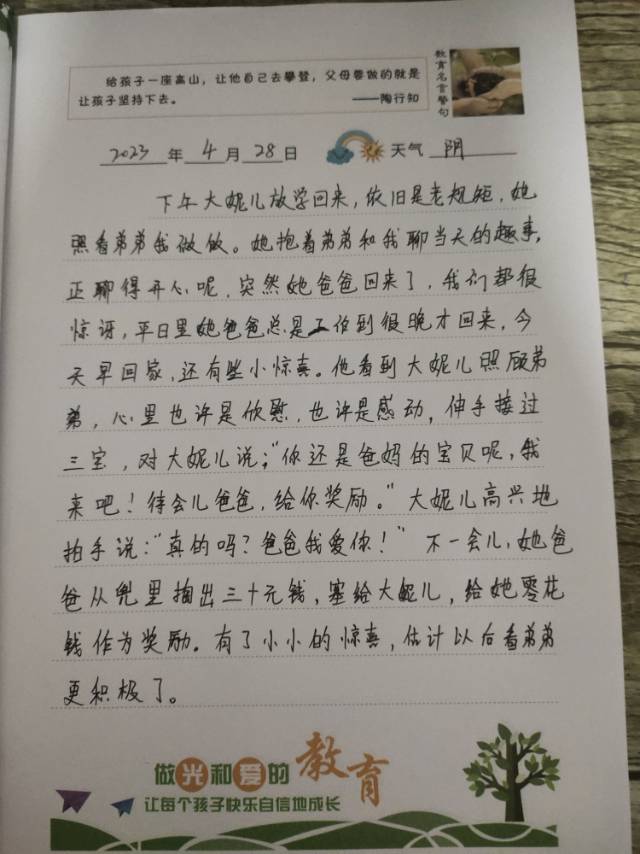 给孩子一座高山，让他自己去攀登，父母要做的就是
让孩子坚持下去。 ——陶行知
教育名言警句
2023 年 4 月 28 日 天气 阴
下午大妮儿放学回来，依旧是老规矩，她
照看弟弟我做饭。她抱着弟弟和我聊当天的趣事，
正聊得开心呢，突然她爸爸回来了，我们都很
惊讶，平日里她爸爸总是工作到很晚才回来，今
天早回家，还有些小惊喜。他看到大妮儿照顾弟
弟，心里也许是欣慰，也许是感动，伸手接过
三宝，对大妮儿说：“你还是爸妈的宝贝呢，我
来吧！待会儿爸爸，给你奖励。”大妮儿高兴地
拍手说：“真的吗？爸爸我爱你！” 不一会儿，她爸
爸从兜里掏出三十元钱，塞给大妮儿，给她零花
钱作为奖励。有了小小的惊喜，估计以后看弟弟
更积极了。
做光和爱的教育
让每个孩子快乐自信地成长